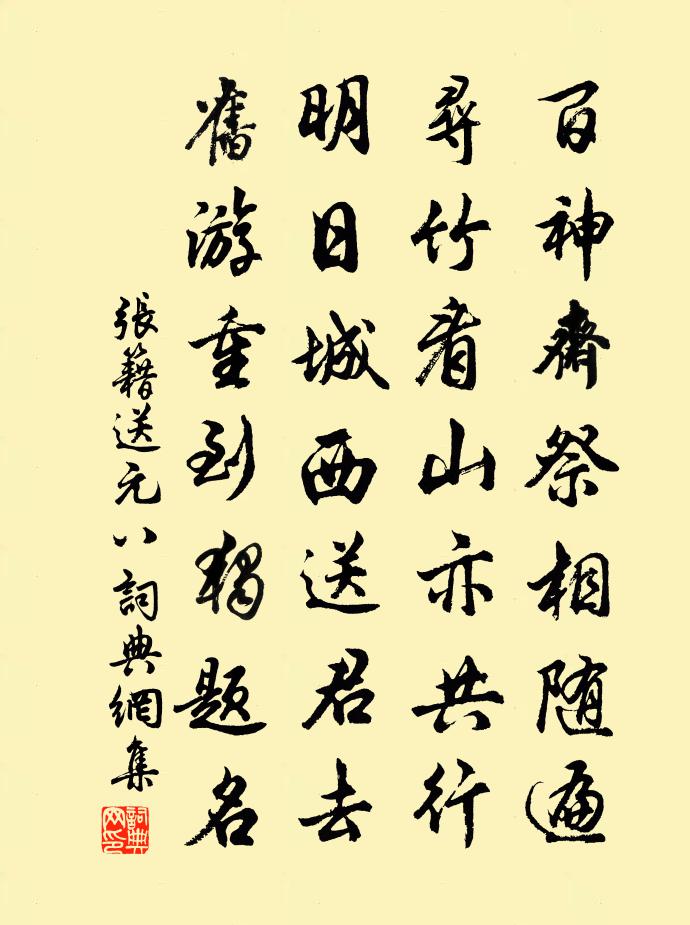 百神齋祭相随遍
尋竹看山亦共行
明日城西送君去
舊游重到獨題名
張籍送元八詞典網集
詞典网印